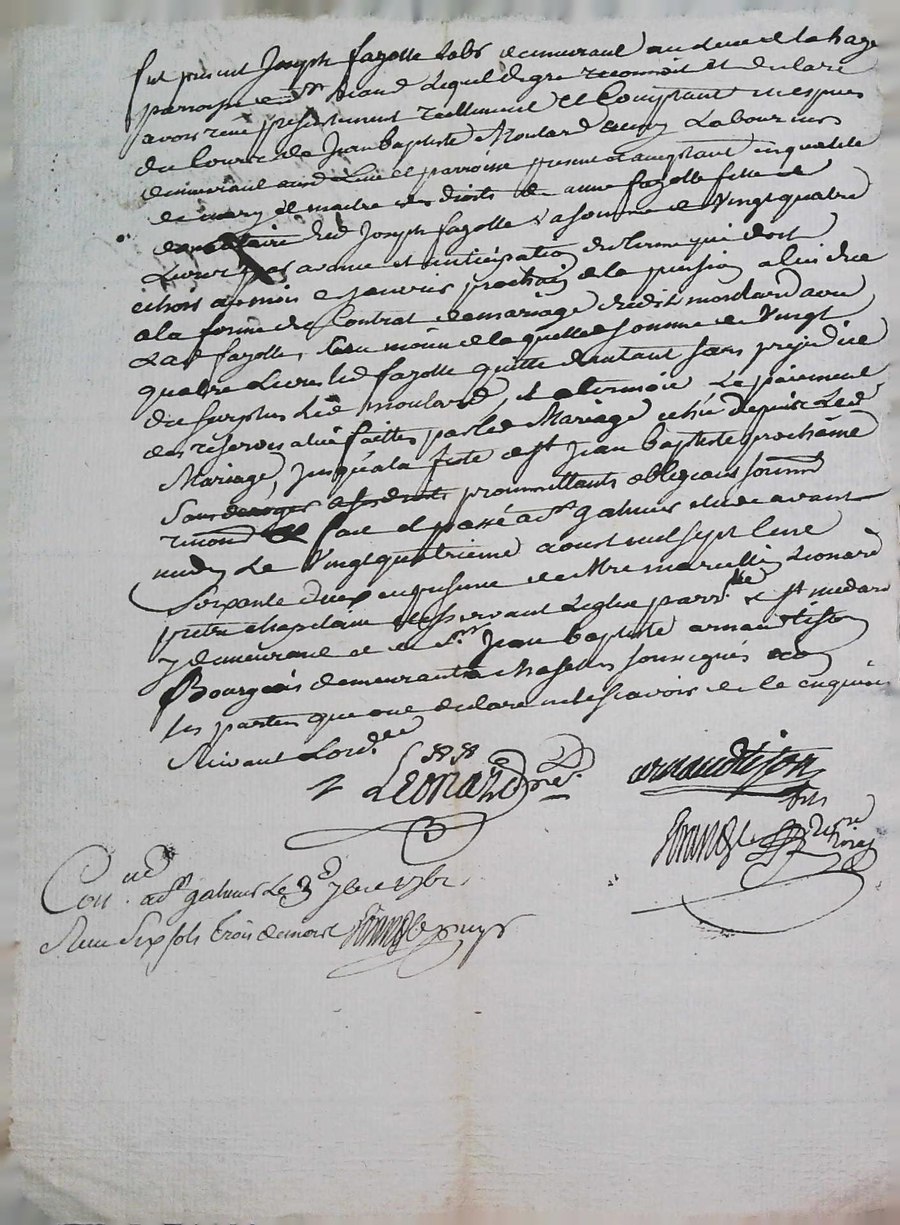 fut present Joseph fazolle Labr demeurant au lieu de la haye
parroisse de St Medard Lequel de gré reconnoit et declare
avoir reçu presentement reellement et Comptant en espèces
du Cours de Jean baptiste Moulard aussy Laboureur
demeurant aud Lieu et parroisse present et acceptant en qualité
de mary et maitre des droits de anne fazolle fille et
donnataire dud Joseph fazolle La somme de Vingt quatre
Livres par avance et anticipation du terme qui doit
echoir au mois de janvier prochain de la pension a lui due
a la forme du Contrat de mariage dudit moulard avec
Lad fazolle, au moien de laquelle somme de Vingt
quatre Livres led fazolle quitte d'autant sans prejudice
du surplus Led moulard, et attermoie Le paiement
des reserves a lui faittes par led Mariage echu depuis Led
Mariage, jusqu'a la feste de St Jean baptiste prochaine
Sans deroger a ses droits promettants obligeants soum
renond fait et passé a St galmier etude avant
midy Le Vingt quatrieme aoust mil sept cent
Soixante deux en presence de Mre marcellin Leonard
pretre chapelain desservant L'eglise parr.lle de St medard
y demeurant et de Sr Jean baptiste arnaud tison
Bourgeois demeurant a Chazelles soussignés non
les parties qui ont declaré ne le scavoir de ce enquis
Suivant L'ord.ce
Leonard ptre.
arnaudtison
fils
Con né a St galmier Le 3e 7bre 1762
Reçu Six sols trois deniers